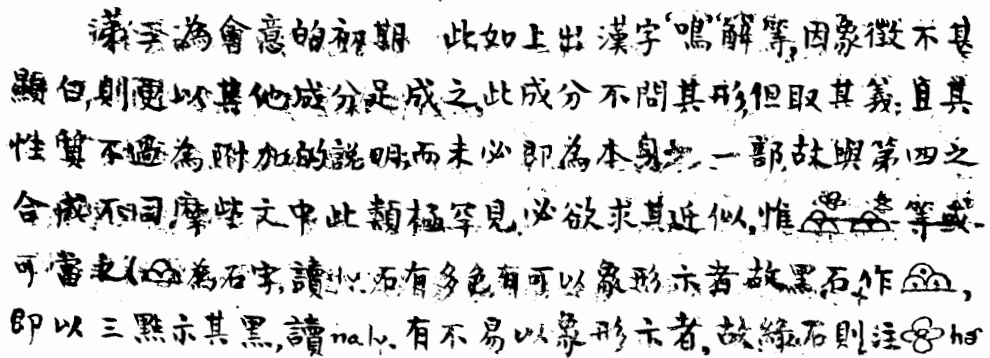 漢字為會意的初期 此如上出漢字"鳴"解等,因象徵不甚
顯白,則更以其他成分足成之,此成分不問其形,但取其義;且其
性質不過為附加的說明,而未必即為本身之一部,故與第四之
合成不同,麽些文中此類極罕見,必欲求其近似,惟 等或
可當之(為石字,讀 石有多色,有可以象形示者,故黑石作,
即以三點示其黑,讀na lv. 有不易以象形示者,故綠石則注